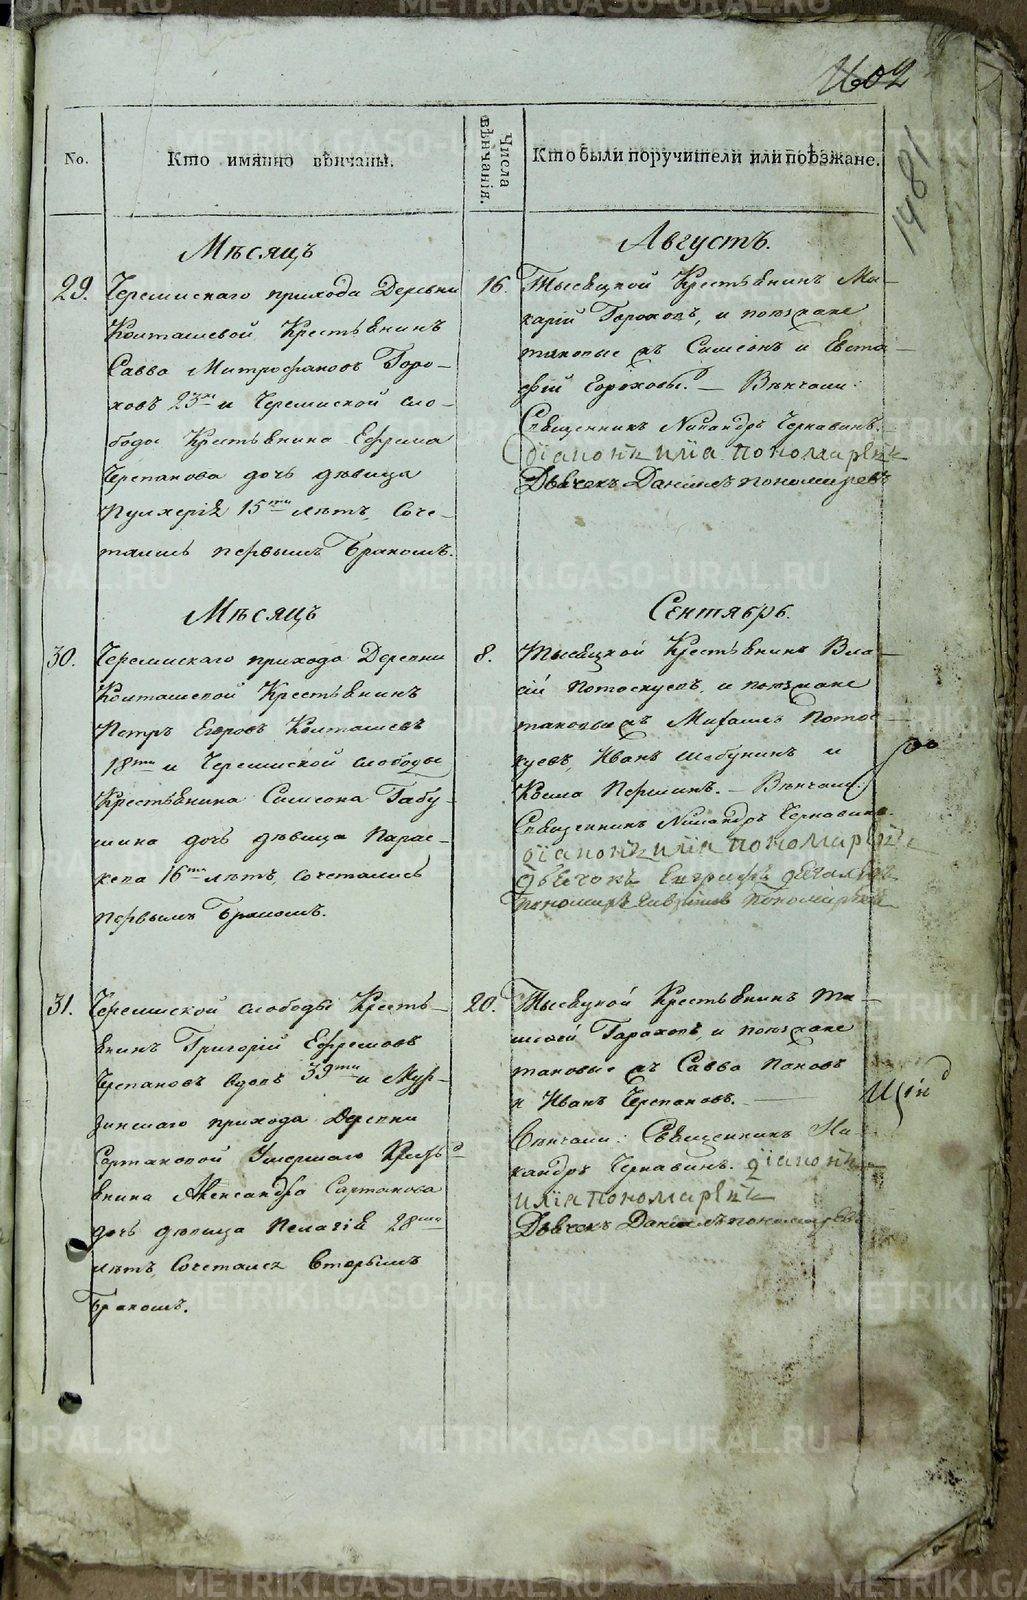 1602
1481
No.
Кто имянно вѣнчаны.
Числа вѣнчанія.
Кто были поручители или поѣзжане.
Мѣсяцъ
Августъ.
29. Черемискаго прихода Деревни
Колташевой, Крестьянинъ
Савва Митрофановъ Горо-
ховъ 23хъ и Черемиской сло-
боды Крестьянина Ефрема
Черепанова дочь дѣвица
Пулхерія 15ти лѣтъ, Соче-
тались первымъ бракомъ.
16. Тысяцкой Крестьянинъ Ма-
карій Гороховъ, и поѣзжане
таковые жъ Симеонъ и Евста-
фій Гороховы. – Вѣнчали:
Священникъ Никандръ Чернавинъ.
Діаконъ илiа пономаревъ
Дьячекъ Данилъ пономаревъ
Мѣсяцъ
Сентябрь.
30. Черемискаго прихода Деревни
Колташевой Крестьянинъ
Петръ Егоровъ Колташевъ
18ти и Черемиской слободы
Крестьянина Симеона Габу-
шина дочь дѣвица Парас-
кева 16ти лѣтъ, сочетались
первымъ бракомъ.
8. Тысяцкой Крестьянинъ Вла-
сій Потоскуевъ, и поѣзжане
таковые жъ Михаилъ Потос-
куевъ, Иванъ Шабунинъ и
Козма Першинъ. – Вѣнчали:
Священникъ Никандръ Чернавинъ.
діаконъ илiа пономаревъ
Дьячокъ Евграфъ
Пономарь пономаревъ
31. Черемиской слободы Кресть-
янинъ Григорій Ефремовъ
Черепановъ вдовъ 39ти и Мур-
зинскаго прихода Деревни
Сартаковой Умершаго Кресть-
янина Александра Сартакова
дочь дѣвица Пелагія 28ми
лѣтъ, Сочетался вторымъ
бракомъ.
20. Тысяцкой Крестьянинъ Ти-
мофей Гараховъ, и поѣзжане
таковые жъ Савва Пановъ
и Иванъ Черепановъ.
Вѣнчали: Священникъ Ни-
кандръ Чернавинъ. діаконъ
илiа пономаревъ
Дьячекъ Данилъ пономаревъ
METRIKI.GASO-URAL.RU